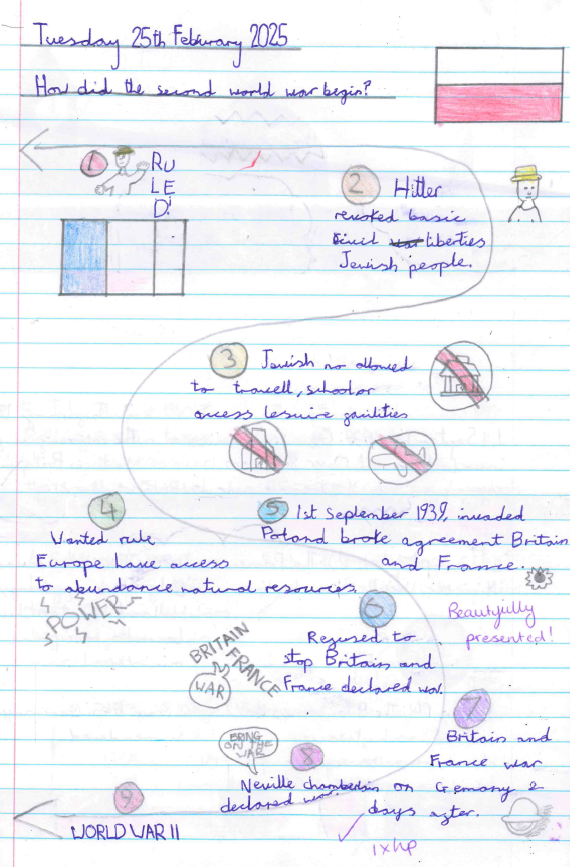 Tuesday 25th Feburary 2025
How did the second world war begin?
1
RU
LE
D!
2 Hitler
revoked basic
civil liberties
Jewish people.
3 Jewish no allowed
to travell, school or
access lesuire facilities
4
Wanted rule
Europe have access
to abundance natural resources.
POWER
5 1st September 1939, invaded
Poland broke agreement Britain
and France.
6
Refused to
stop Britain and
France declared war.
BRITAIN
FRANCE
WAR
Beautyfully
presented!
7
Britain and
France war
on Gemany 2
days after.
BRING
ON THE
WAR
8
Neville chamberlain
declared war.
9
WORLD WAR II
1xhp